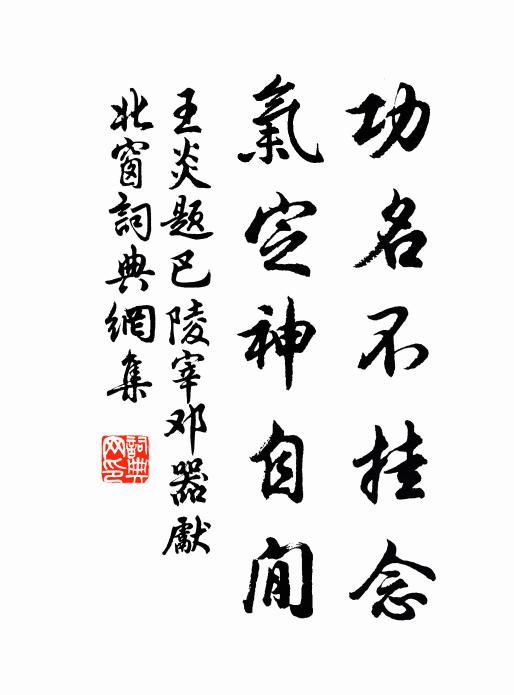 功名不挂念
氣定神自閒
王炎题巴陵宰邓器獻
北窗詞典網集
詞典网印